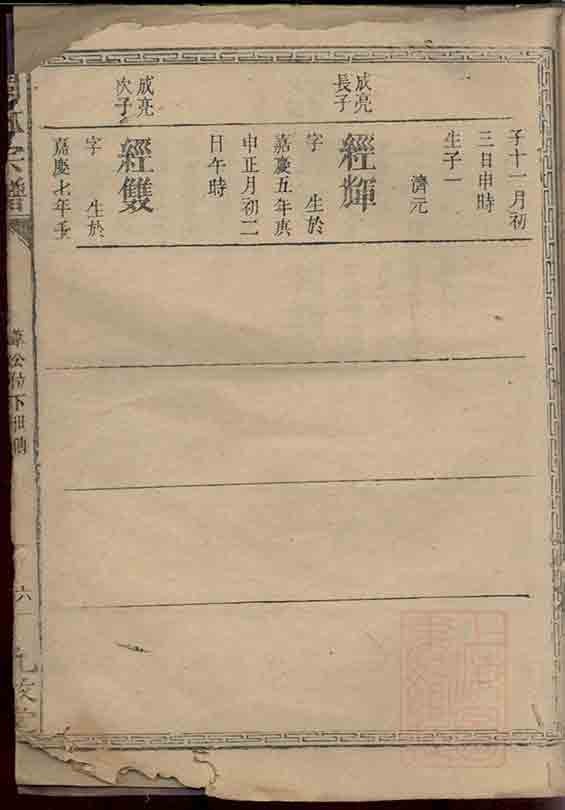 子十一月初
三日申時
生子一
濟元
成亮
長子
經輝
字　生於
嘉慶五年庚
申正月初二
日午時
成亮
次子
經雙
字　生於
嘉慶七年壬
宗譜
公位下世
六